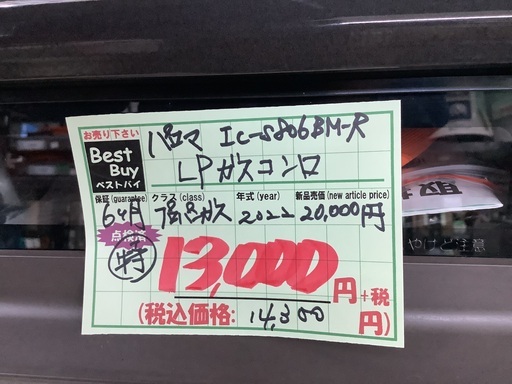 お売り下さい
Best Buy
ベストバイ
パロマ IC-S806BM-R
LPガスコンロ
保証(guarantee) クラス(class) 年式(year) 新品売価(new article price)
6ヶ月 プロパンガス 2022 20,000円
点検済
特
13,000円+税
(税込価格: 14,300 円)
やけど注意